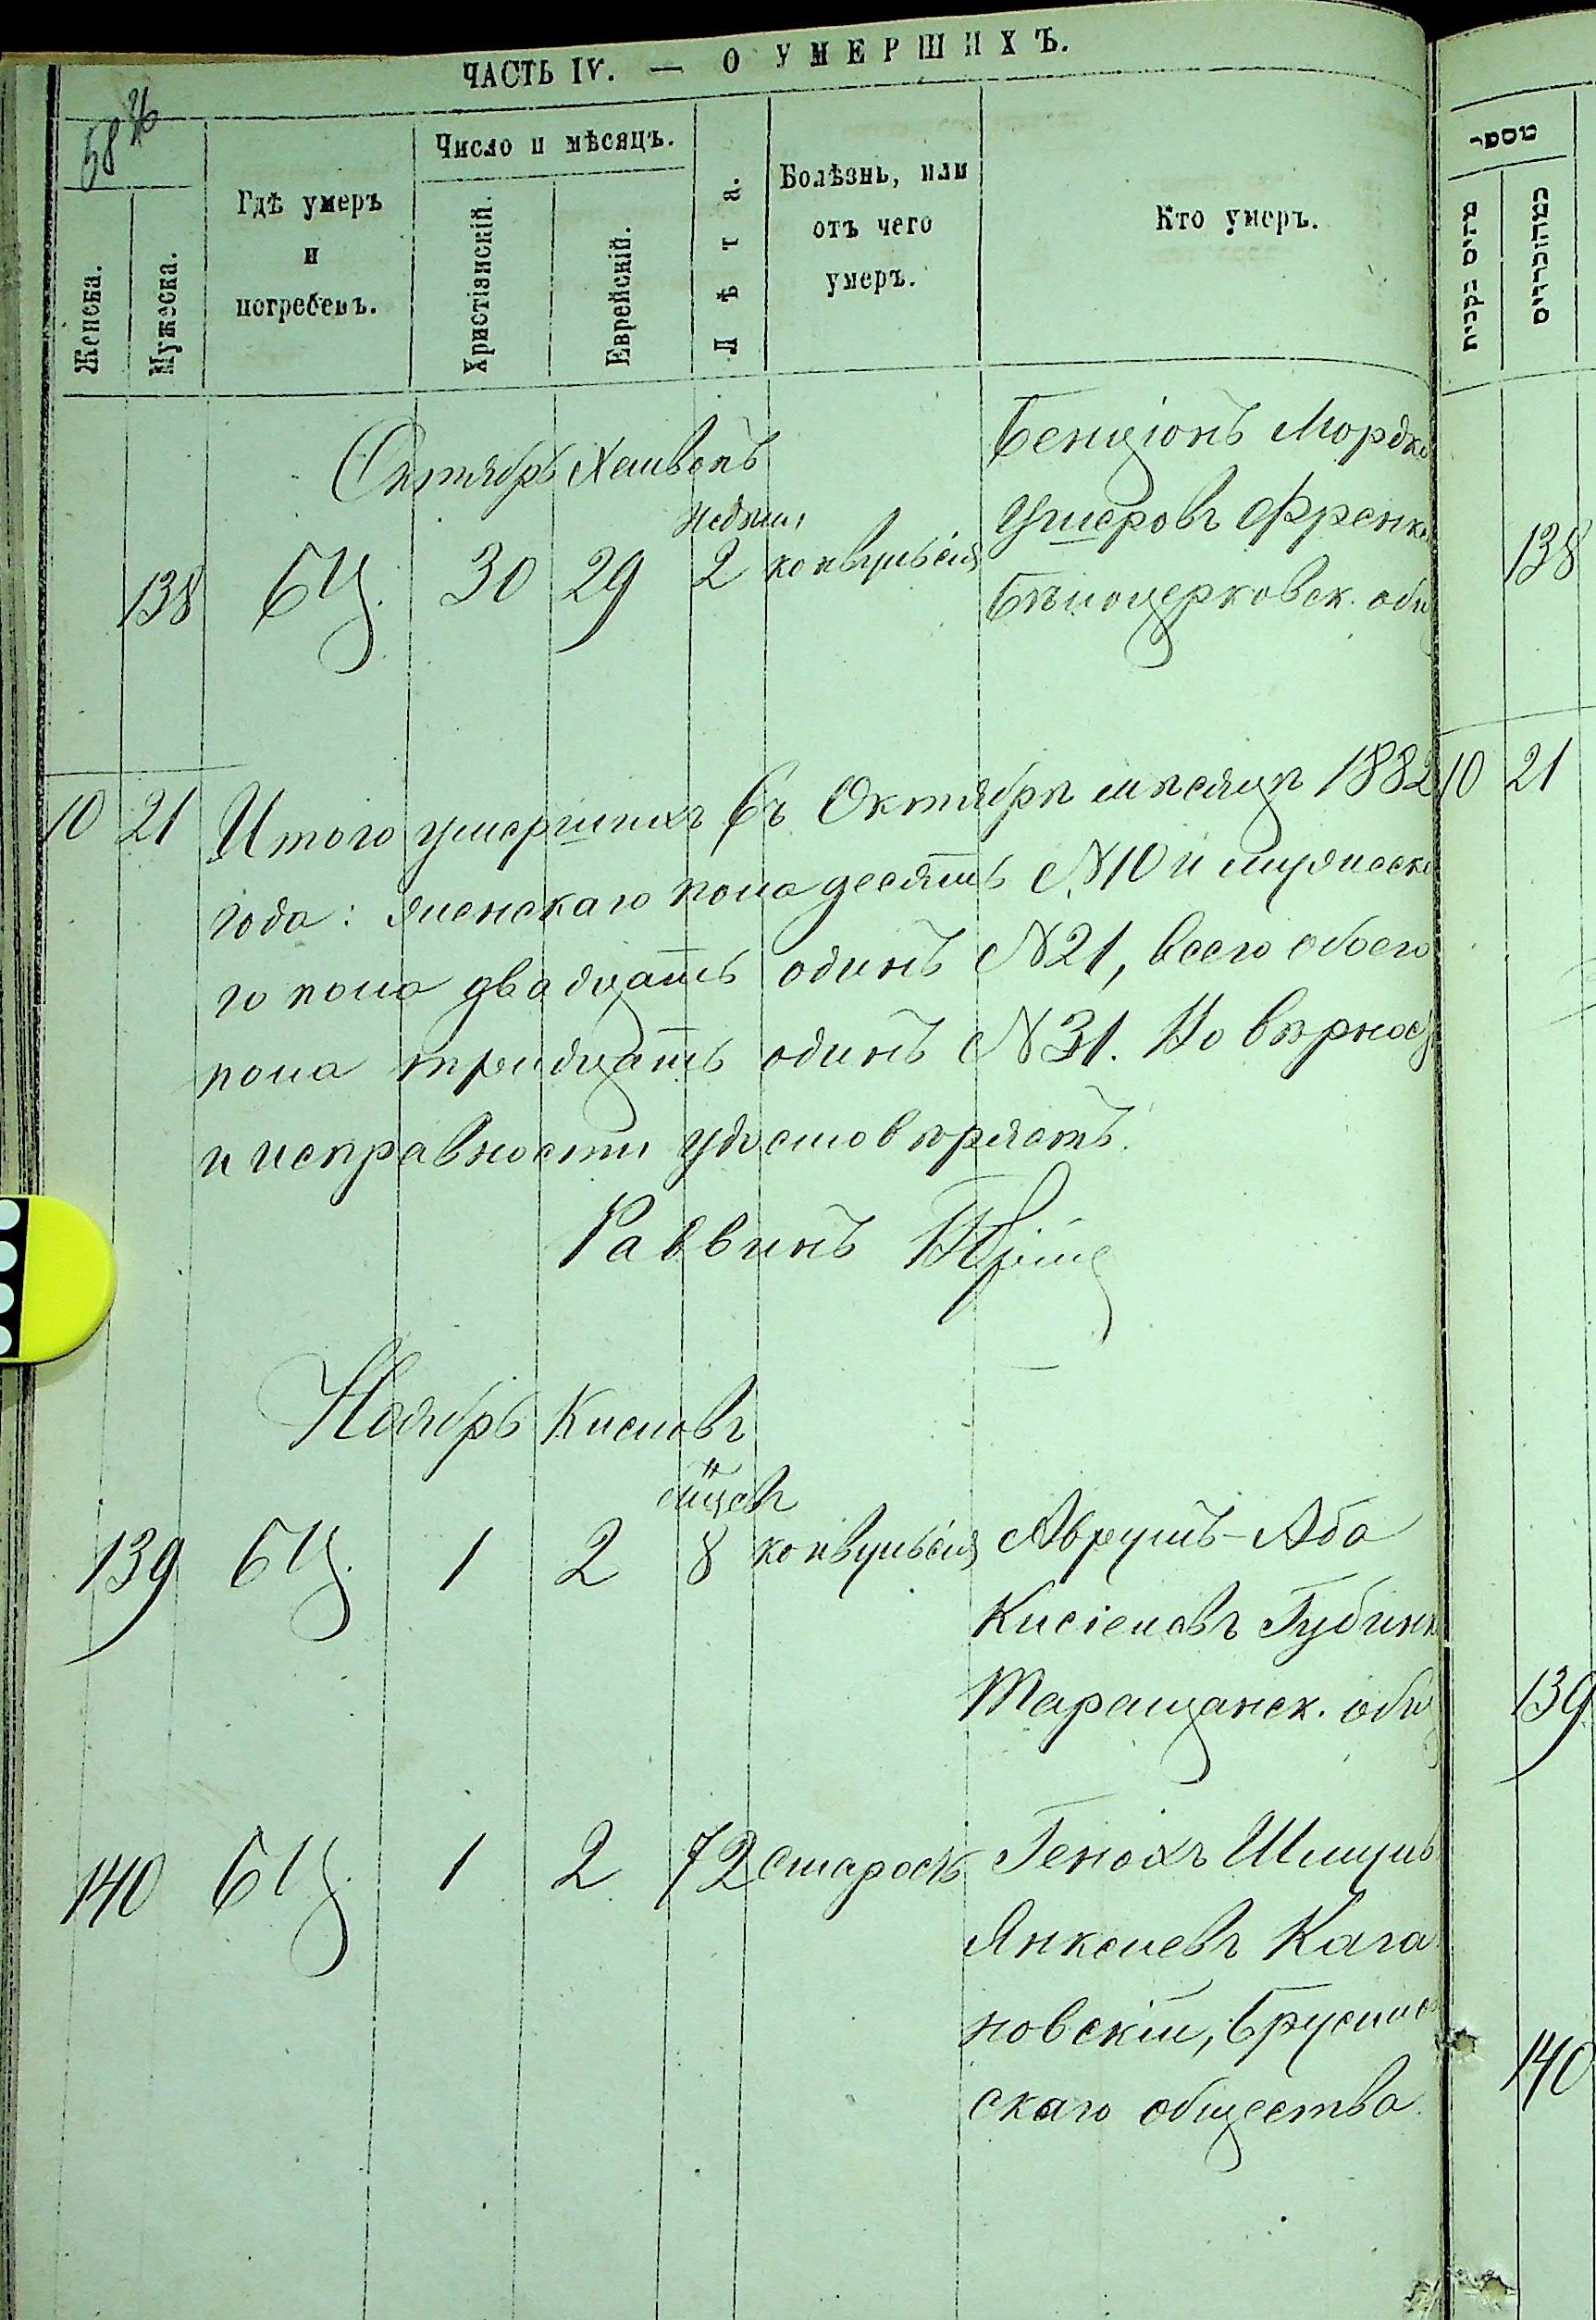 ЧАСТЬ IV. — О УМЕРШИХЪ.
58
Женска.
Мужеска.
Гдѣ умеръ
и
погребенъ.
Число и мѣсяцъ.
Христіанскій.
Еврейскій.
Лѣта.
Болѣзнь, или
отъ чего
умеръ.
Кто умеръ.
מספר
מהים בקבית
כמהוכרים
Октябрь Хешвонъ
138 БЦ. 30 29 недѣли 2 конвульсія
Бенціонъ Мордко
Ушеровъ Френке
Бѣлоцерковск. общ
138
10 21 Итого умершихъ въ Октябрѣ мѣсяцѣ 1882
года: женскаго пола десять №10 и мужеска
го пола двадцать одинъ №21, всего обоего
пола тридцать одинъ №31. Въ вѣрнос
и исправности удостовѣряетъ.
Раввинъ
10 21
Ноябрь Кислевъ
139 БЦ. 1 2 8 конвульсія
Аврумъ-Аба
Кисіелевъ Губинк
Таращанск. общ
139
140 БЦ. 1 2 72 старость
Генохъ Шмуль
Янкелевъ Кага
новскій, Брусило
скаго общества
140